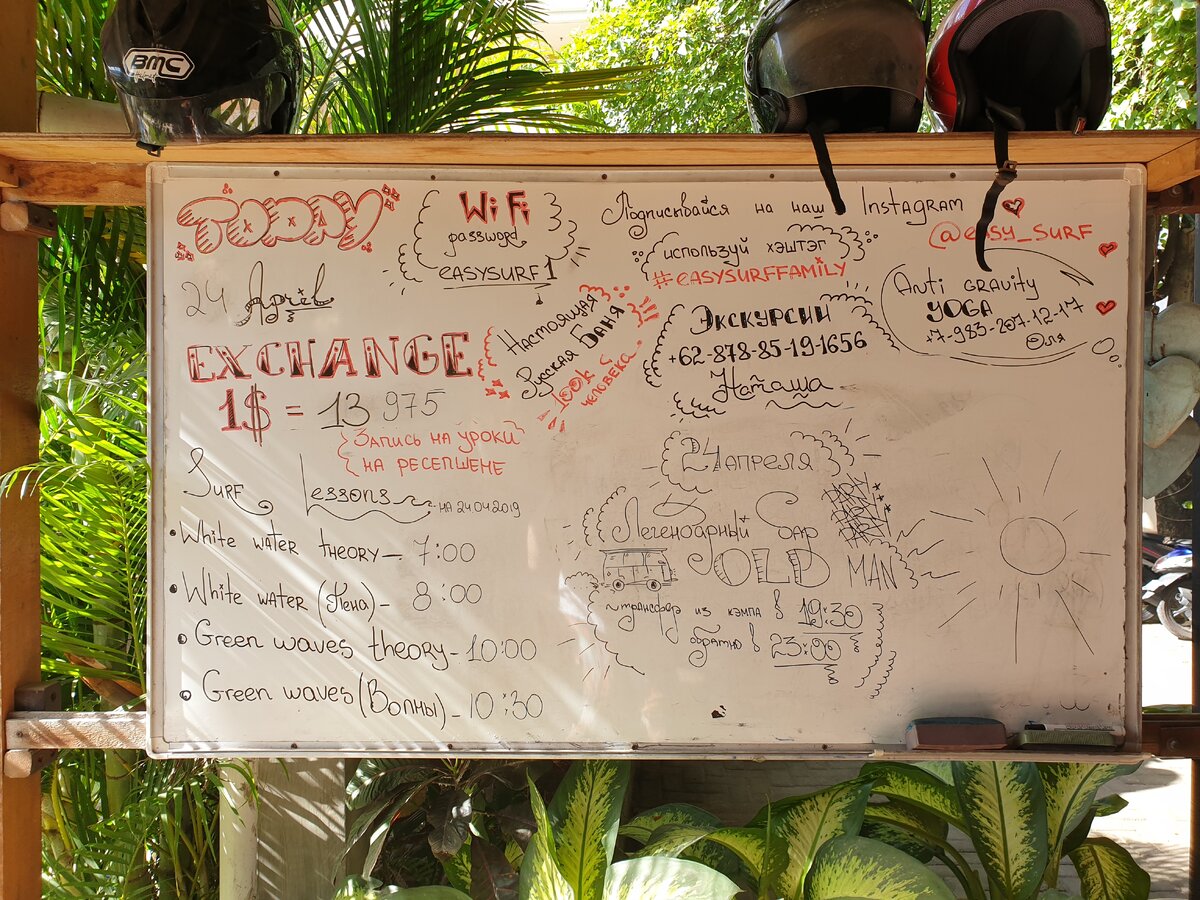 BMC
TODAY
24 April
WiFi
password
easysurf1
Подписывайся на наш Instagram
@easy_surf
используй хэштег
#easysurffamily
Anti gravity
YOGA
+7-983-207-12-17
Оля
EXCHANGE
1$ = 13 975
Настоящая
Русская Баня
100k
человека
Экскурсии
+62-878-85-19-1656
Наташа
Запись на уроки
на ресепшене
Surf Lessons на 24.04.2019
• White water theory – 7:00
• White water (Пена) – 8:00
• Green waves theory – 10:00
• Green waves (Волны) – 10:30
24 апреля
Легендарный бар
OLD MAN
трансфер из кэмпа в 19:30
обратно в 23:00